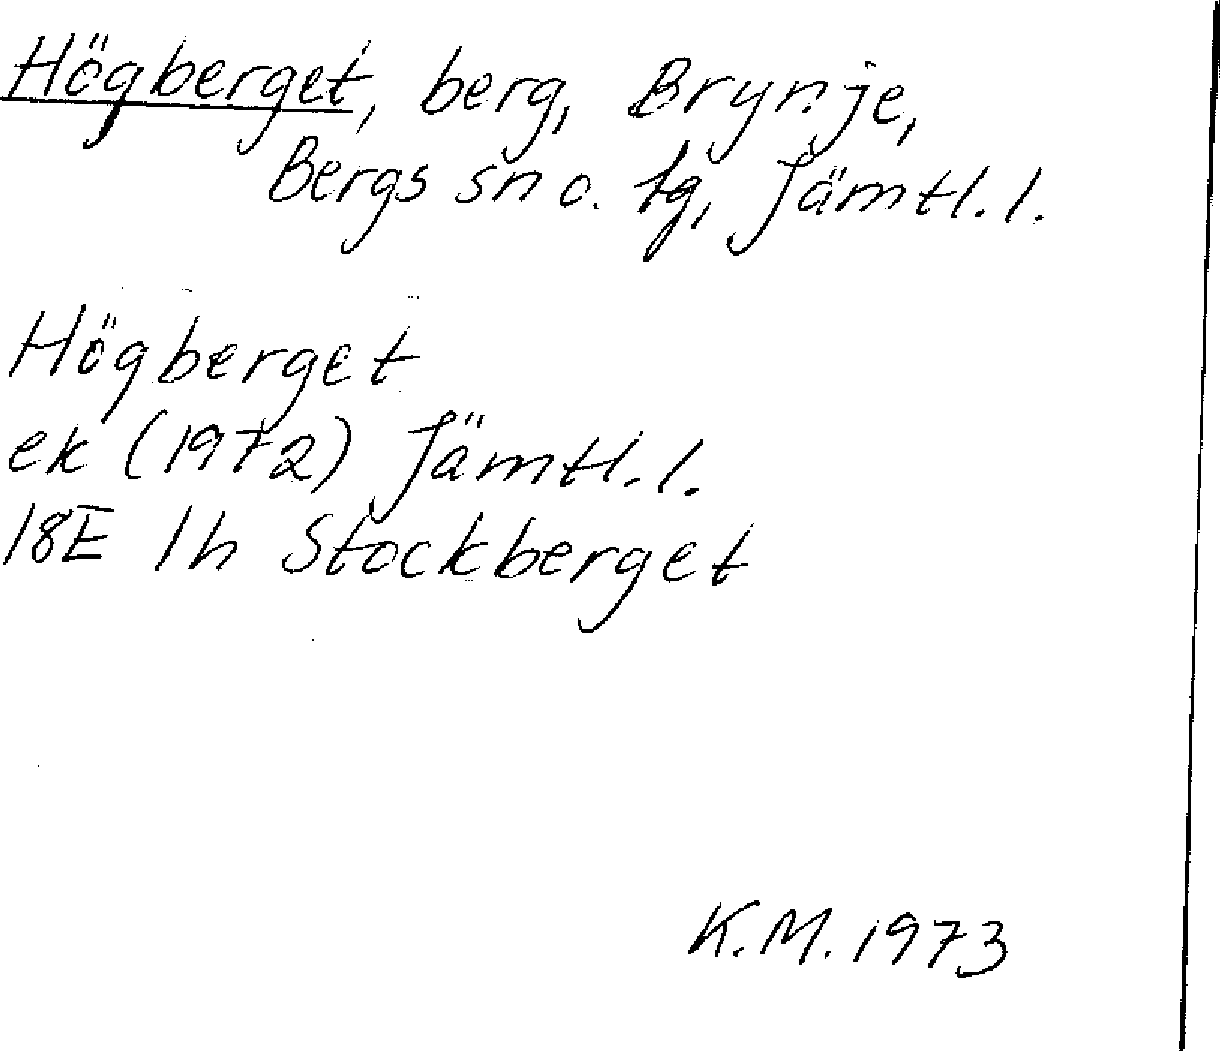 Högberget, berg, Brynje,
Bergs sn o. tg, Jämtl. l.
Högberget
ek (1972) Jämtl. l.
18E 1h Stockberget
K.M. 1973